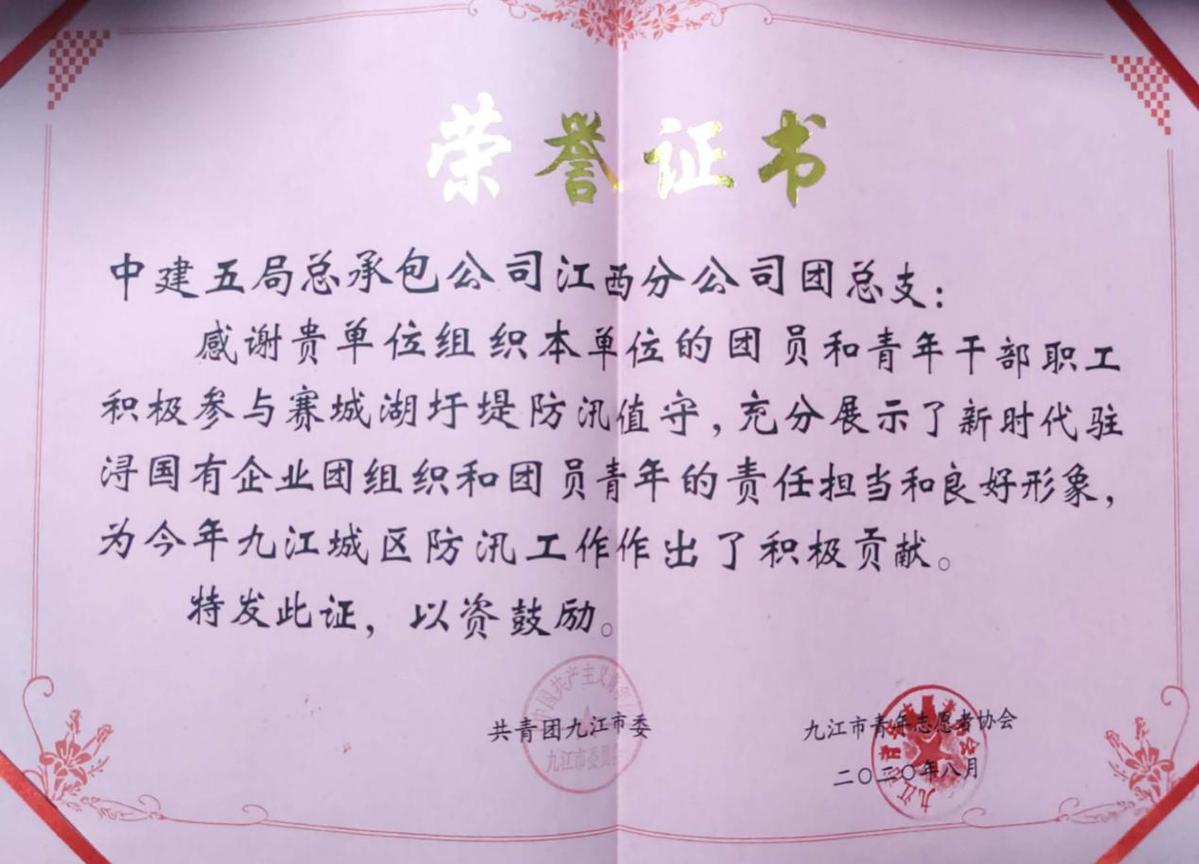 荣誉证书
中建五局总承包公司江西分公司团总支:
感谢贵单位组织本单位的团员和青年干部职工
积极参与赛城湖圩堤防汛值守,充分展示了新时代驻
浔国有企业团组织和团员青年的责任担当和良好形象,
为今年九江城区防汛工作作出了积极贡献。
特发此证,以资鼓励。
共青团九江市委 九江市青年志愿者协会
二〇二〇年八月